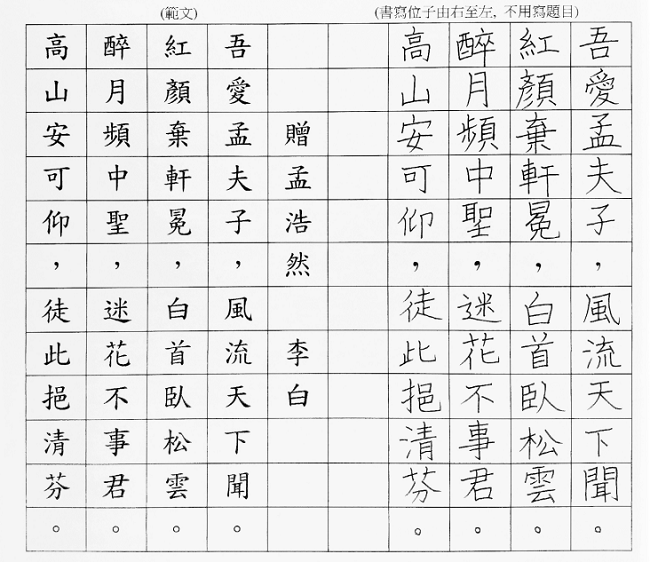 (範文)
贈孟浩然 李白
吾愛孟夫子，風流天下聞。
紅顏棄軒冕，白首臥松雲。
醉月頻中聖，迷花不事君。
高山安可仰，徒此挹清芬。
(書寫位子由右至左, 不用寫題目)
吾愛孟夫子，風流天下聞。
紅顏棄軒冕，白首臥松雲。
醉月頻中聖，迷花不事君。
高山安可仰，徒此挹清芬。